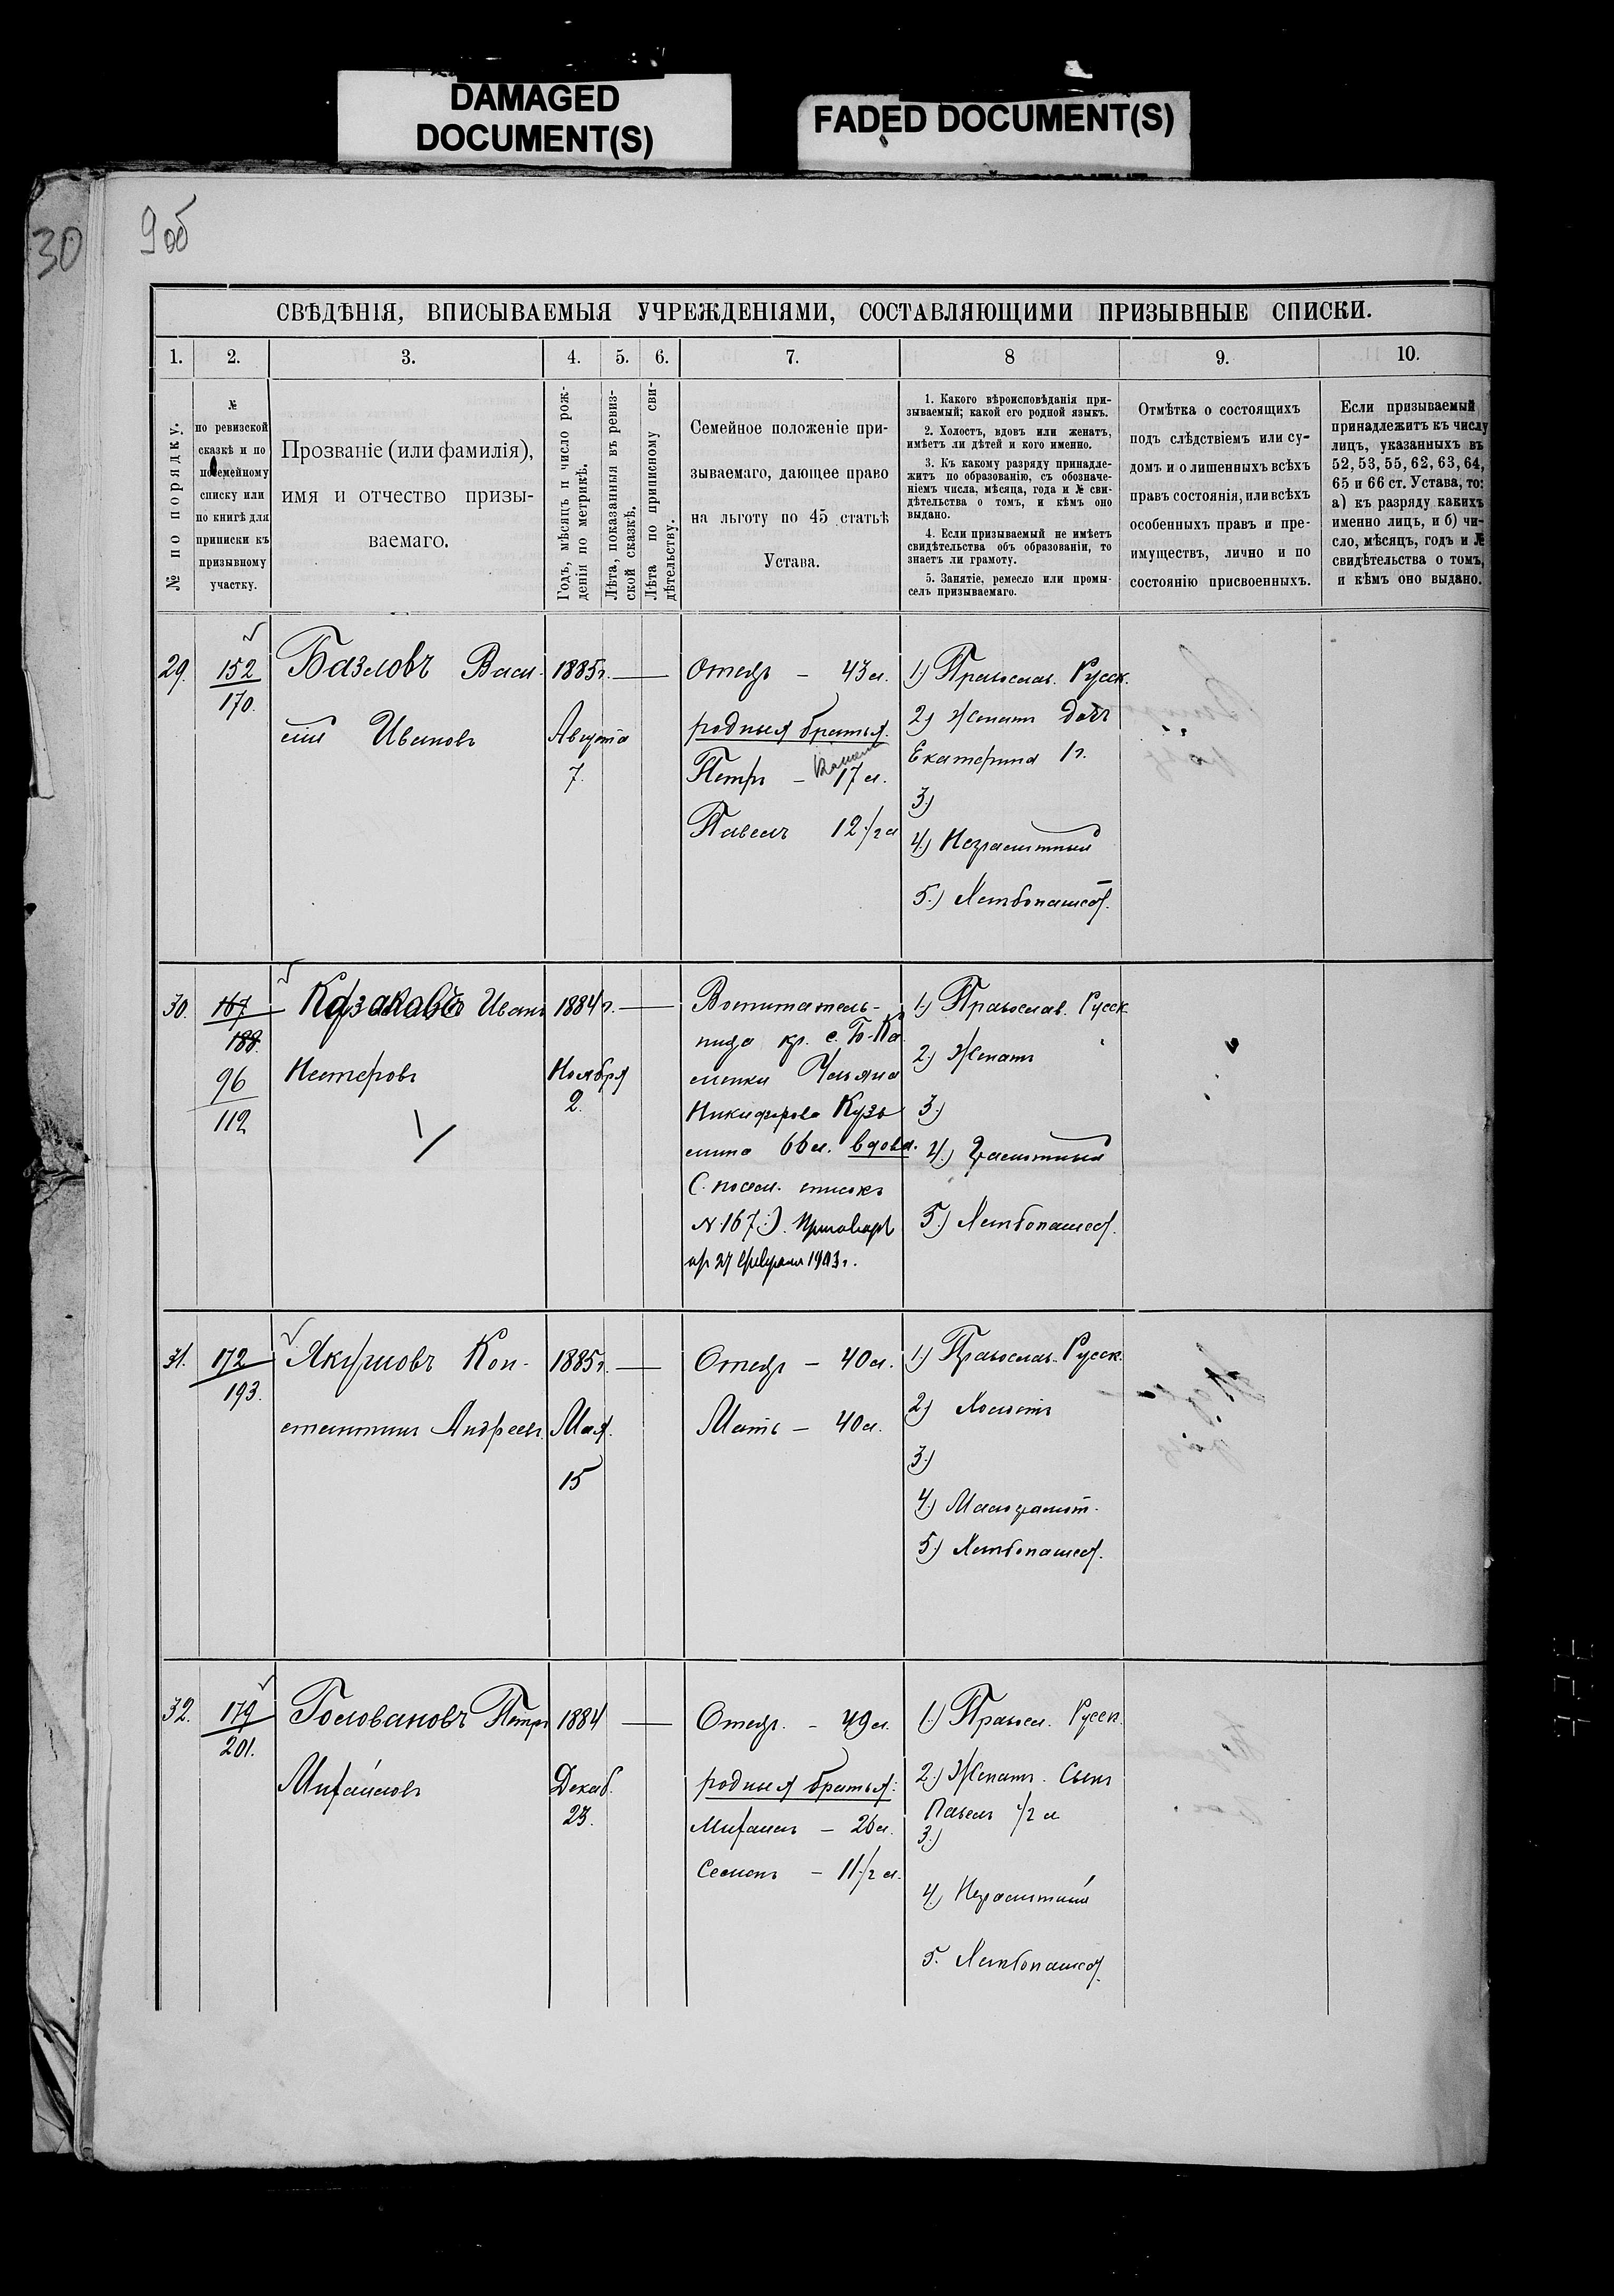 DAMAGED
DOCUMENT(S)
FADED DOCUMENT(S)
30
9об
СВѢДѢНІЯ, ВПИСЫВАЕМЫЯ УЧРЕЖДЕНІЯМИ, СОСТАВЛЯЮЩИМИ ПРИЗЫВНЫЕ СПИСКИ.
1. 2. 3. 4. 5. 6. 7. 8 9. 10.
№ по порядку.
№
по ревизской
сказкѣ и по
посемейному
списку или
по книгѣ для
приписки къ
призывному
участку.
Прозваніе (или фамилія),
имя и отчество призы-
ваемаго.
Годъ, мѣсяцъ и число рож-
денія по метрикѣ.
Лѣта, показанныя въ ревиз-
ской сказкѣ.
Лѣта по приписному сви-
дѣтельству.
Семейное положеніе при-
зываемаго, дающее право
на льготу по 45 статьѣ
Устава.
1. Какого вѣроисповѣданія при-
зываемый; какой его родной языкъ.
2. Холостъ, вдовъ или женатъ,
имѣетъ ли дѣтей и кого именно.
3. Къ какому разряду принадле-
житъ по образованію, съ обозначе-
ніемъ числа, мѣсяца, года и № сви-
дѣтельства о томъ, и кѣмъ оно
выдано.
4. Если призываемый не имѣетъ
свидѣтельства объ образованіи, то
знаетъ ли грамоту.
5. Занятіе, ремесло или промы-
селъ призываемаго.
Отмѣтка о состоящихъ
подъ слѣдствіемъ или су-
домъ и о лишенныхъ всѣхъ
правъ состоянія, или всѣхъ
особенныхъ правъ и пре-
имуществъ, лично и по
состоянію присвоенныхъ.
Если призываемый
принадлежитъ къ числу
лицъ, указанныхъ въ
52, 53, 55, 62, 63, 64,
65 и 66 ст. Устава, то:
а) къ разряду какихъ
именно лицъ, и б) чи-
сло, мѣсяцъ, годъ и №
свидѣтельства о томъ,
и кѣмъ оно выдано.
29.
152
170.
Базловъ Васи-
лій Ивановъ
1885г.
Августа
7.
Отецъ – 43л.
родныя братья.
Петръ – 17л.
Павелъ 12 1/2л
1) Православ. Русск.
2) Женатъ дочь
Екатерина 1г.
3)
4) Неграмотный
5.) Хлѣбопашес.
30.
167
188.
96
112
Казаковъ Иванъ
Нестеровъ
1884г.
Ноября
2.
Воспитатель-
ница кр. с. Б-Ка
менки Ульяна
Никифорова Кузь
мина 66л. вдова.
С. посем. списокъ
№ 167.). Приговоръ
от 27 февраля 1903г.
1) Православ. Русск
2) Женатъ
3)
4.) Грамотный
5.) Хлѣбопашес.
31.
172
193.
Якушовъ Кон-
стантинъ Андреевъ
1885г.
Мая.
15
Отецъ – 40л.
Мать – 40л.
1) Православ. Русск.
2) Холостъ
3)
4) Малограмот.
5) Хлѣбопашес.
32.
179
201.
Головановъ Петръ
Михайловъ
1884
Декаб.
23.
Отецъ. – 49л.
родныя братья:
Михаилъ – 26л.
Семенъ – 11 1/2 л.
1.) Правосл. Русск.
2.) Женатъ. Сынъ
Павелъ 1/2 л
3.)
4.) Неграмотный
5. Хлѣбопашес.